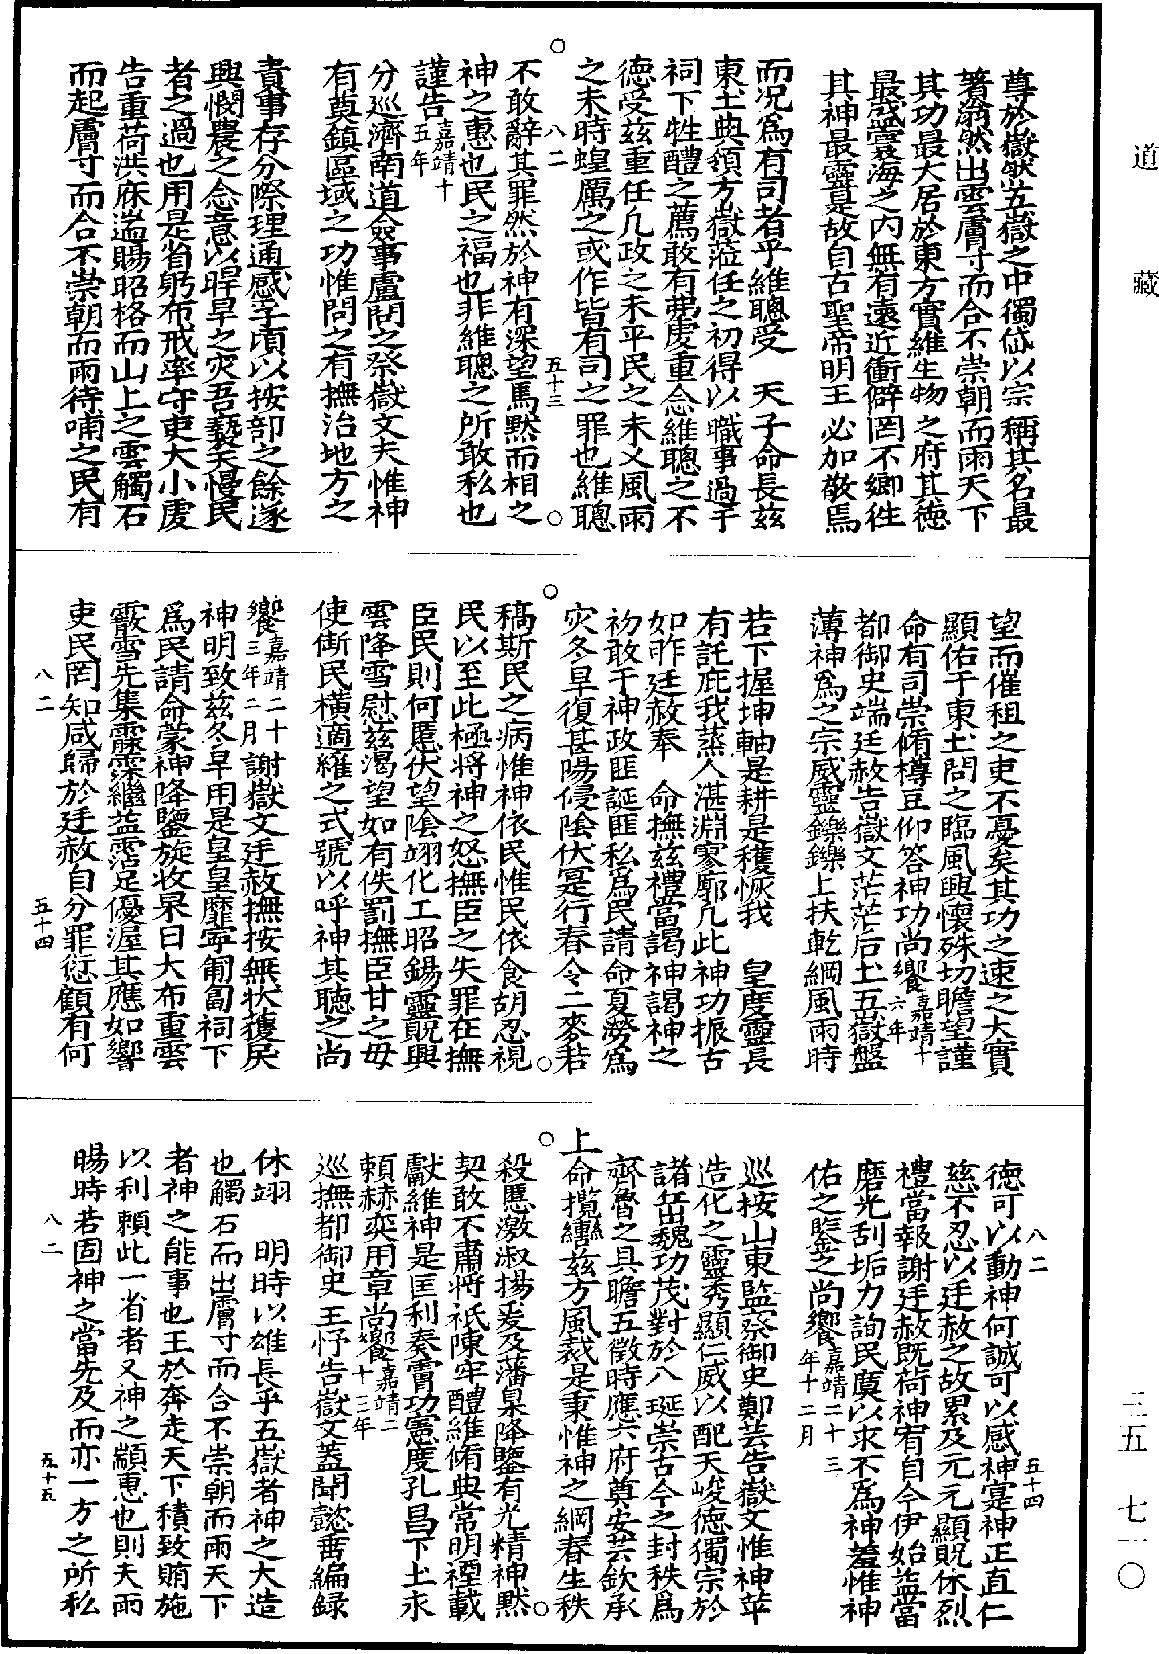 道藏
尊於嶽然五嶽之中獨岱以宗稱其名最
著滃然出雲膚寸而合不崇朝而雨天下
其功最大居於東方實維生物之府其德
最盛寰海之內無有遠近衝僻罔不嚮往
其神最靈是故自古聖帝明王必加敬焉
而況為有司者乎維聰受　天子命長茲
東土典領方嶽蒞任之初得以職事過于
祠下牲醴之薦敢有弗虔重念維聰之不
德受茲重任凡政之未平民之未乂風雨
之未時蝗厲之或作皆有司之罪也維聰
八二　五十三
不敢辭其罪然於神有深望焉默而相之
神之惠也民之福也非維聰之所敢私也
謹告嘉靖十五年
分巡濟南道僉事盧問之祭嶽文夫惟神
有奠鎮區域之功惟問之有撫治地方之
責事存分際理通感孚頃以按部之餘遂
興憫農之念意以睅旱之灾吾褻天慢民
者之過也用是省躬布戒率守吏大小虔
告重荷洪庥遄賜昭格而山上之雲觸石
而起膚寸而合不崇朝而雨待哺之民有
望而催租之吏不憂矣其功之速之大實
顯佑于東土問之臨風興懷殊切瞻望謹
命有司崇脩樽豆仰答神功尚饗嘉靖十六年
都御史端廷赦告嶽文茫茫后土五嶽盤
薄神為之宗威靈鑠鑠上扶乾綱風雨時
若下握坤軸是耕是穫恢我　皇度靈長
有託庇我蒸人湛淵寥廓凡此神功振古
如昨廷赦奉　命撫茲禮當謁神謁神之
初敢于神政匪誕匪私為民請命夏澇為
灾冬旱復甚陽侵陰伏寔行春令二麥若
稿斯民之病惟神依民惟民依食胡忍視
民以至此極將神之怒撫臣之失罪在撫
臣民則何慝伏望陰翊化工昭錫靈貺興
雲降雪慰茲渴望如有佚罰撫臣甘之毋
使斯民橫適罹之式號以呼神其聽之尚
饗嘉靖二十三年二月謝嶽文廷赦撫按無狀獲戾
神明致茲冬旱用是皇皇靡寧匍匐祠下
為民請命蒙神降鑒旋收杲日大布重雲
霰雪先集霡霂繼益霑足優渥其應如響
吏民罔知咸歸於廷赦自分罪愆顧有何
八二　五十四
德可以動神何誠可以感神寔神正直仁
慈不忍以廷赦之故累及元元顯貺休烈
禮當報謝廷赦既荷神宥自今伊始益當
磨光刮垢力詢民廙以求不為神羞惟神
佑之鑒之尚饗嘉靖二十三年十二月
巡按山東監察御史鄭芸告嶽文惟神莘
造化之靈秀顯仁威以配天峻德獨宗於
諸岳巍功茂對於八埏崇古今之封秩為
齊魯之具瞻五徵時應六府奠安芸欽承
上命攬轡茲方風裁是秉惟神之綱春生秩
殺慝激淑揚爰及藩臬降鑒有光精神默
契敢不肅將祇陳牢醴維脩典常明禋載
獻維神是匡利奏膚功憲度孔昌下土永
賴赫奕用章尚饗嘉靖二十三年
巡撫都御史王忬告嶽文蓋聞懿畨編録
休翊　明時以雄長乎五嶽者神之大造
也觸石而出膚寸而合不崇朝而雨天下
者神之能事也王於奔走天下積致賄施
以利賴此一省者又神之顓惠也則夫雨
暘時若固神之當先及而亦一方之所私
八二　五十五
三五　七一〇